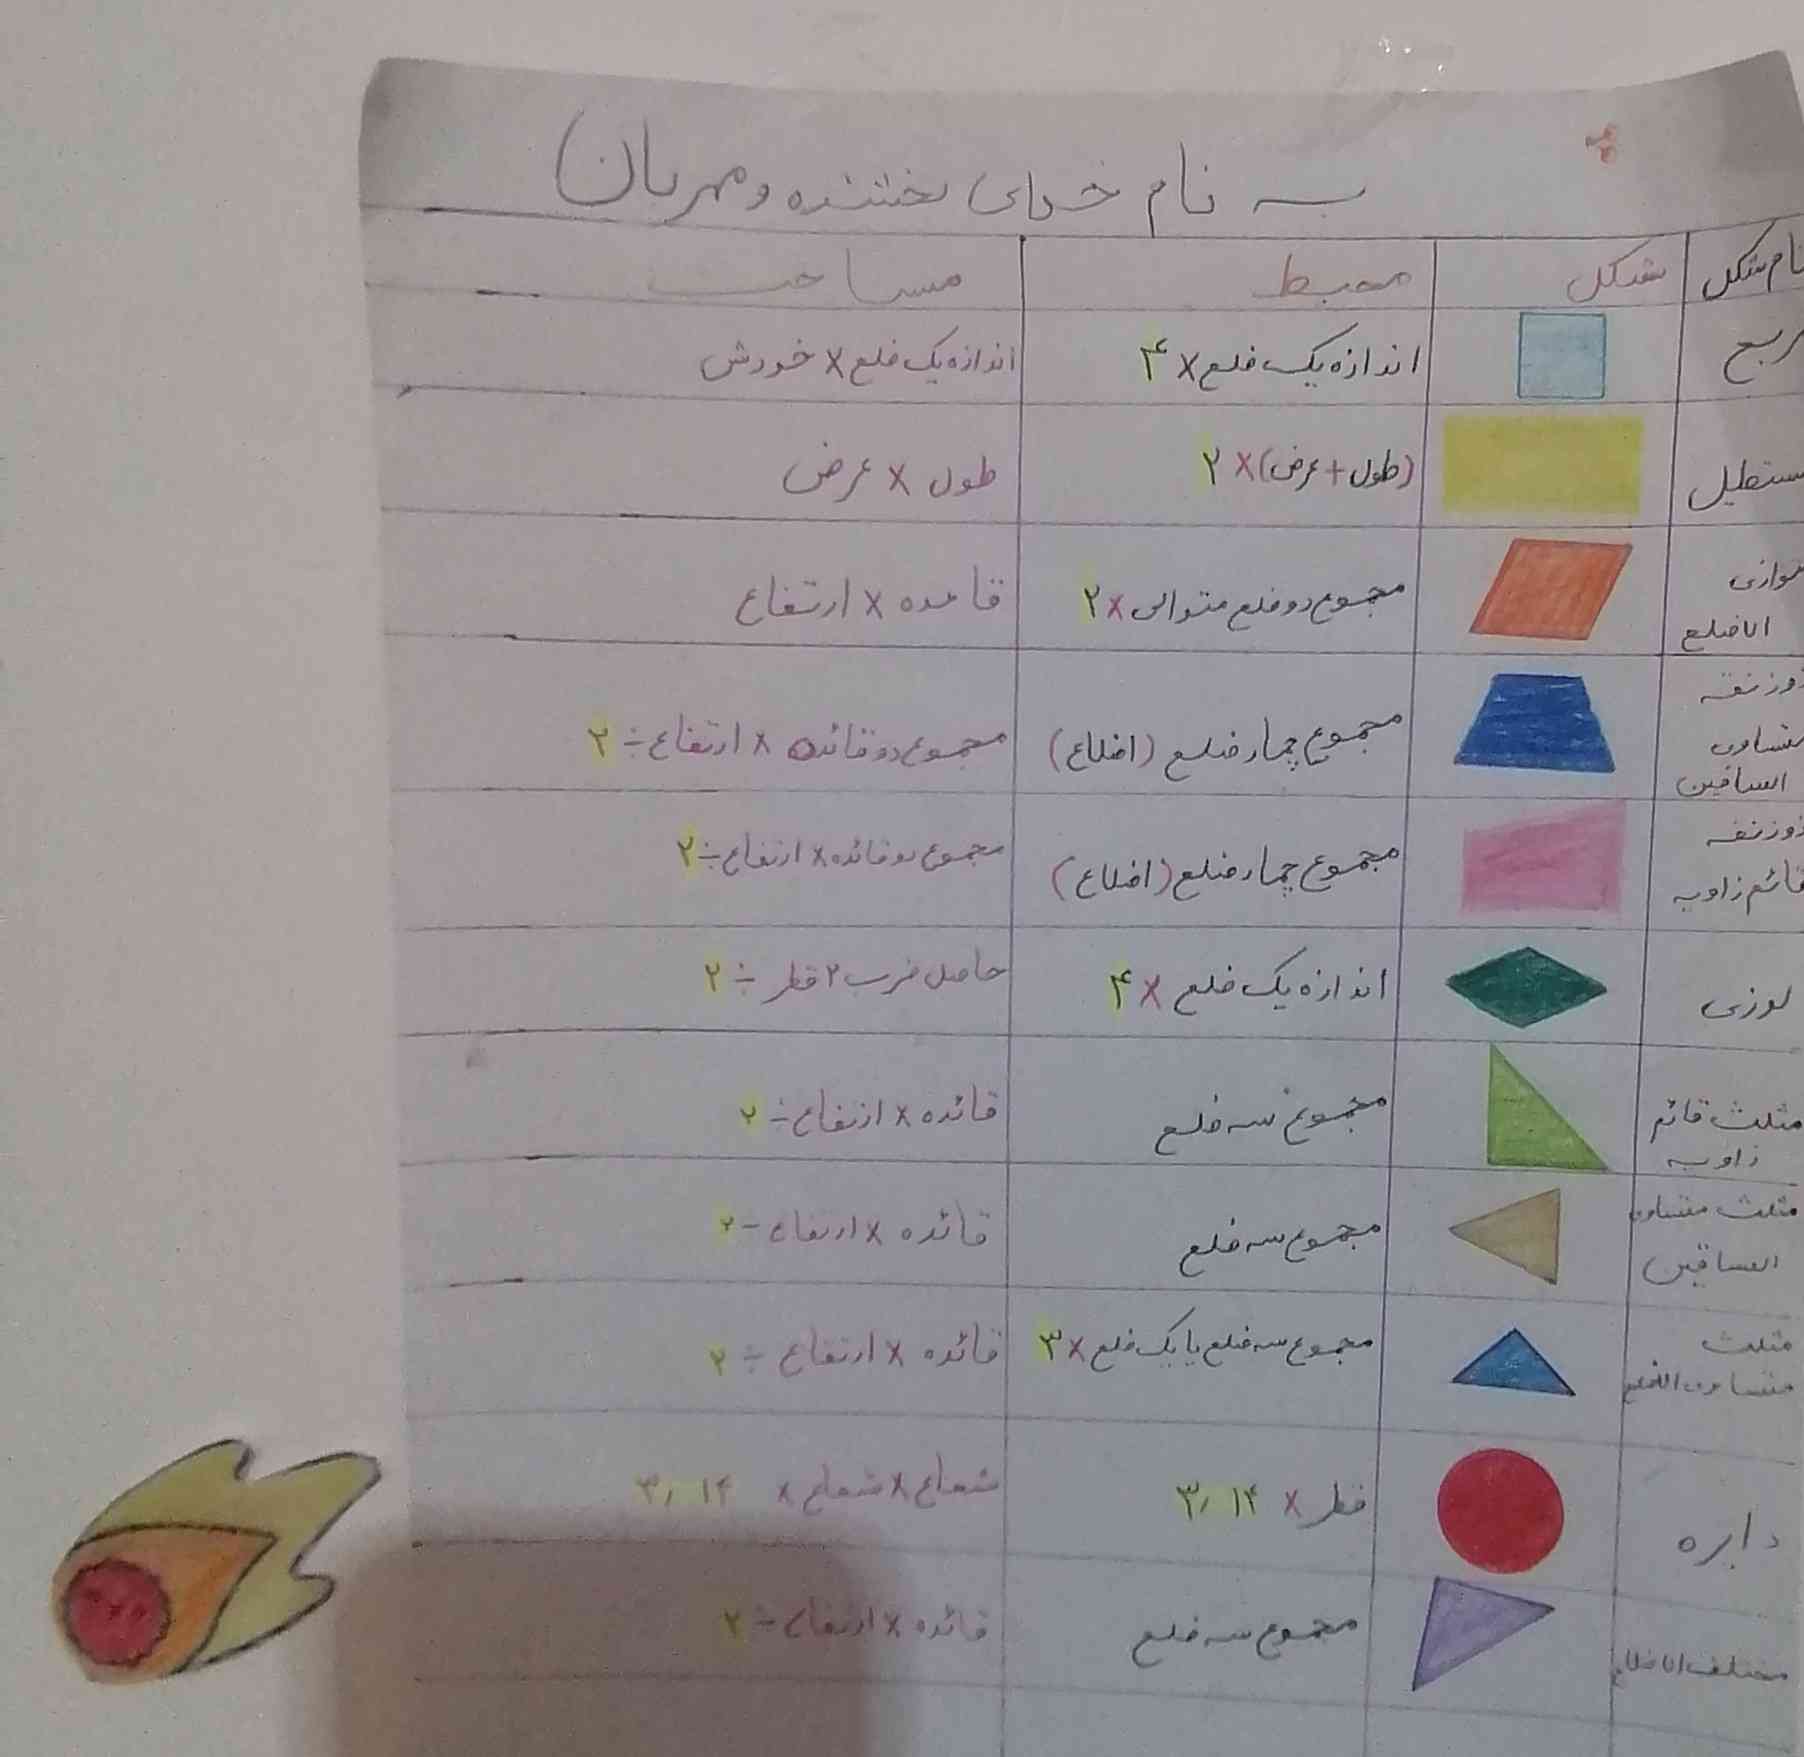 به نام خدای بخشنده و مهربان
نام شکل شکل محیط مساحت
ربع اندازه یک ضلع × ۴ اندازه یک ضلع × خودش
ستطیل (طول + عرض) × ۲ طول × عرض
توازی الاضلع مجموع دو ضلع متوالی × ۲ قاعده × ارتفاع
ذوزنقه متساوی الساقین مجموع چهار ضلع (اضلاع) مجموع دو قائده × ارتفاع ÷ ۲
ذوزنقه قائم زاویه مجموع چهار ضلع (اضلاع) مجموع دو قائده × ارتفاع ÷ ۲
لوزی اندازه یک ضلع × ۴ حاصل ضرب ۲ قطر ÷ ۲
مثلث قائم زاویه مجموع سه ضلع قائده × ارتفاع ÷ ۲
مثلث متساوی الساقین مجموع سه ضلع قائده × ارتفاع ÷ ۲
مثلث متساوی الاضلع مجموع سه ضلع یا یک ضلع × ۳ قائده × ارتفاع ÷ ۲
دایره قطر × ۳٫۱۴ شعاع × شعاع × ۳٫۱۴
مختلف الاضلاع مجموع سه ضلع قائده × ارتفاع ÷ ۲